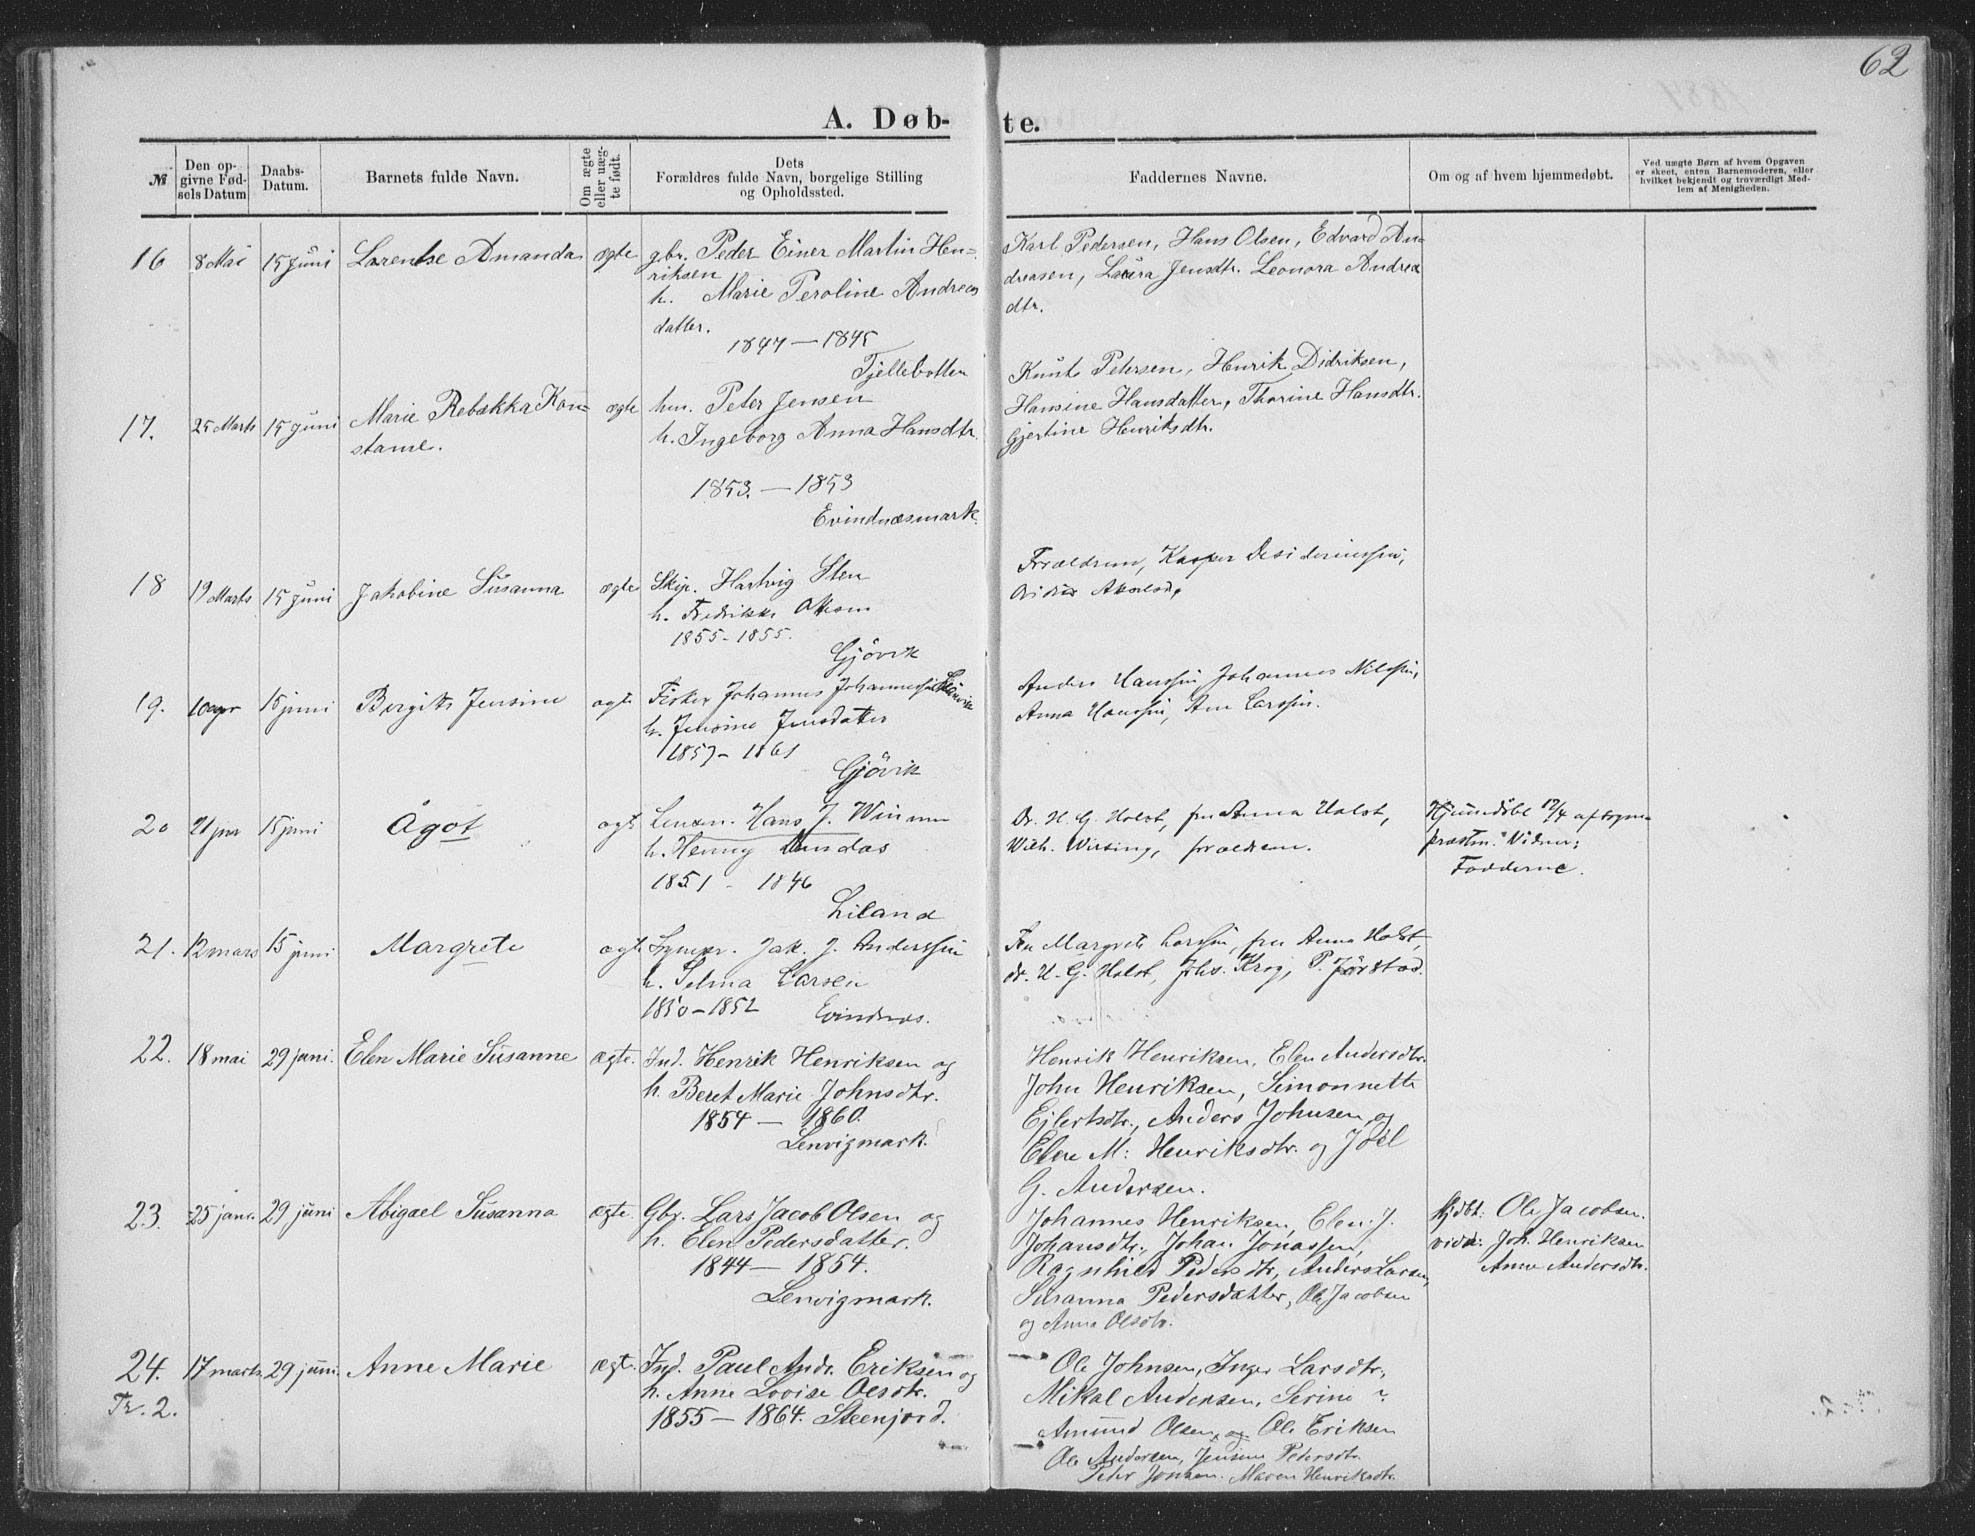 62
A. Døbte.
№
Den opgivne Fødsels Datum
Daabs-Datum.
Barnets fulde Navn.
Om ægte eller uægte født.
Dets Forældres fulde Navn, borgelige Stilling og Opholdssted.
Faddernes Navne.
Om og af hvem hjemmedøbt.
Ved uægte Børn af hvem Opgaven er skeet, enten Barnemoderen, eller hvilket bekjendt og troværdigt Medlem af Menigheden.
16 8 Mai 15 Juni Lorentse Amanda ægte gbr. Peder Einer Martin Hen=
riksen
h. Marie Peroline Andreas
datter.
1847 — 1845
Tjellebotten
Karl Pedersen, Hans Olsen, Edvard An=
dreasen, Laura Jensdtr. Leonora Andrea
dtr.
17. 25 Marts 15 Juni Marie Rebækka Kon=
stanse.
ægte hm. Peter Jensen
h. Ingeborg Anna Hansdtr.
1853. — 1853
Evindnæsmark.
Knut Petersen, Henrik Didriksen,
Hansine Hansdatter, Thorine Hansdtr.
Gjertine Henriksdtr.
18 19 Marts 15 Juni Jakobine Susanna ægte Skip. Hartvig Sten
h. Fredrikke
1855 - 1855.
Gjövik
Forældrene, Kasper
19. 10 apr 15 juni Bergitte Jensine ægte Fisker Johannes Johannessen
h. Jensine Jensdatter
1857 - 1861
Gjövik
Anders Hanssen Johannes Nilssen,
Anna Hanssen, Ane Larssen.
20 21 jan 15 juni Ågot ægte Lensm. Hans J. Winum
h. Henny
1851 - 1846
Liland
Dr. H. G. Holst, fru Anna Holst,
Wilh. Wirsing, forældrene.
Hjemmdöbt 12/4 af sogne
præsten Vidner:
Fadderne.
21. 12 mars 15 juni Margrete ægte Jak. J. Anderssen
h. Selma Larsen
1850 - 1852 Evindnes.
Fru Margrete Larssen, fru Anna Holst,
dr. H. G. Holst, Johs. Krog, P. Jörstad.
22. 18 mai 29 juni. Elen Marie Susanne ægte. Ind. Henrik Henriksen og
h. Beret Marie Johnsdtr.
1854 — 1860.
Lenvigmark.
Henrik Henriksen, Elen Andersdtr.
John Henriksen, Simonnette
Ejlertsdtr., Anders Johnsen og
Elen M: Henriksdtr. og Joël
G. Andersen.
23. 25 janr. 29 juni Abigael Susanna ægte. Gbr. Lars Jacob Olsen og
h. Elen Pedersdatter.
1844 — 1854.
Lenvigmark.
Johannes Henriksen, Elen J.
Johansdtr., Johan Jonassen,
Ragnhild Pedersdtr, Anders Larsen,
Susanna Pedersdatter, Ole Jacobsen
og Anna Olsdtr.
Hjdbt: Ole Jacobsen.
vidn: Joh. Henriksen
Anne Andersdtr.
24. 17 marts. 29 juni. Anne Marie ægt. Ind. Paul Andr. Eriksen og
Tr. 2.
h. Anne Lovise Olsdtr.
1855 — 1864. Steenjord.
Ole Johnsen, Inger Larsdtr,
Mikal Andersen, Serine ?
Amund Olsen, og Ole Eriksen
Ole Andersen, Jensine Petersdtr.
Peter Jonsen. Maren Henriksdtr.